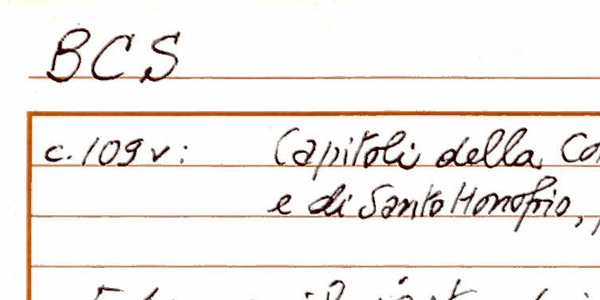 BCS
c. 109 v: Capitoli della
e di Santo Honofrio,